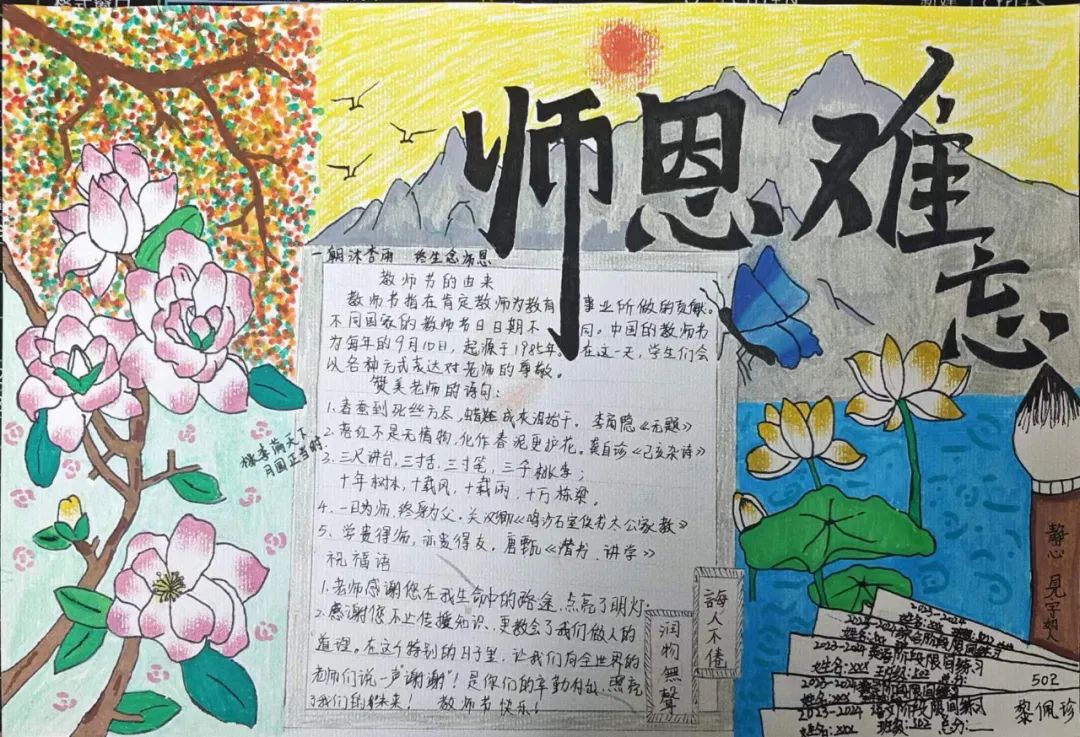 师恩难忘
一朝沐杏雨 终生念师恩
教师节的由来
教师节指在肯定教师为教育事业所做的贡献。
不同国家的教师节日日期不同。中国的教师节
为每年的9月10日，起源于1985年。在这一天，学生们会
以各种方式表达对老师的尊敬。
赞美老师的语句：
1.春蚕到死丝方尽，蜡炬成灰泪始干。李商隐《无题》
2.落红不是无情物，化作春泥更护花。龚自珍《己亥杂诗》
3.三尺讲台，三寸舌，三寸笔，三千桃李；
十年树木，十载风，十载雨，十万栋梁。
4.一日为师，终身为父。关汉卿《鸣沙石室佚书太公家教》
5、学贵得师，亦贵得友。唐甄《潜书·讲学》
祝福语
1.老师感谢您在我生命中的路途，点亮了明灯.
2.感谢您不止传授知识，更教会了我们做人的
道理。在这个特别的日子里，让我们向全世界的
老师们说一声"谢谢"！是你们的辛勤付出，照亮
了我们的未来！ 教师节快乐！
桃李满天下
月圆正当时
润物無聲
誨人不倦
静心 見字如人
2023-2024
2023-2024英语阶段限时练习
姓名:xxx 班级:502 总分:
姓名:xxx
2023-2024语文阶段限时练习
姓名:xxx 班级:502 总分:
502
黎佩珍